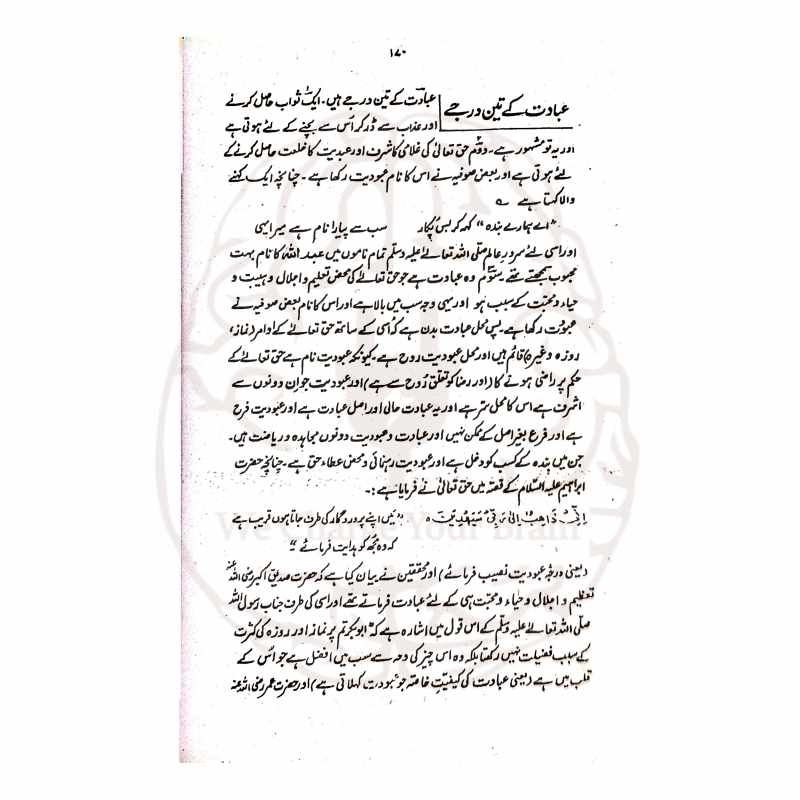 ۱۷۰
عبادت کے تین درجے
عبادت کے تین درجے ہیں۔ ایک ثواب حاصل کرنے
اور عذاب سے ڈر کر اُس سے بچنے کے لئے ہوتی ہے
اور یہ تو مشہور ہے۔ دوم حق تعالیٰ کی غلامی کا شرف اور عبدیت کا خلعت حاصل کرنے کے
لئے ہوتی ہے اور بعض صوفیہ نے اس کا نام عبودیت رکھا ہے۔ چنانچہ ایک کہنے
والا کہتا ہے ؎
"اے ہمارے بندہ" کہہ کر بس پکار سب سے پیارا نام ہے میرا یہی
اور اسی لئے سرورِ عالم صلی اللہ تعالےٰ علیہ وسلم تمام ناموں میں عبد اللہ کا نام بہت
محبوب سمجھتے تھے۔ سوم وہ عبادت ہے جو حق تعالےٰ کی محض تعظیم و اجلال و ہیبت و
حیاء و محبت کے سبب ہو اور یہی وجہ سب میں بالا ہے اور اس کا نام بعض صوفیہ نے
عبودت رکھا ہے۔ پس محل عبادت بدن ہے کہ اُسی کے ساتھ حق تعالےٰ کے اوامر (نماز،
روزہ وغیرہ) قائم ہیں اور محل عبودیت روح ہے۔ کیونکہ عبودیت نام ہے حق تعالےٰ کے
حکم پر راضی ہونے کا (اور رضا کو تعلق رُوح سے ہے) اور عبودیت جو ان دونوں سے
اشرف ہے اس کا محل سر ہے اور یہ عبادت حالی اور اصل عبادت ہے اور عبودیت فرح
ہے اور فرع بغیر اصل کے ممکن نہیں اور عبادت و عبودیت دونوں مجاہدہ و ریاضت ہیں۔
جن میں بندہ کے کسب کو دخل ہے اور عبودیت رہنمائی و محض عطاء حق ہے۔ چنانچہ حضرت
ابراہیم علیہ السلام کے قصہ میں حق تعالیٰ نے فرمایا ہے:۔
اِنِّیْ ذَاهِبٌ اِلٰی رَبِّیْ سَیَهْدِیْنِ ہ "میں اپنے پروردگار کی طرف جاتا ہوں قریب ہے
کہ وہ مجھ کو ہدایت فرمائے"
(یعنی درجۂ عبودیت نصیب فرمائے) اور محققین نے بیان کیا ہے کہ حضرت صدیق اکبر رضی اللہ عنہ
تعظیم و اجلال و حیاء و محبت ہی کے لئے عبادت فرماتے تھے اور اسی کی طرف جناب رسول اللہ
صلی اللہ تعالےٰ علیہ وسلم کے اس قول میں اشارہ ہے کہ "ابوبکر تم پر نماز اور روزہ کی کثرت
کے سبب فضیلت نہیں رکھتا بلکہ وہ اس چیز کی وجہ سے سب میں افضل ہے جو اُس کے
قلب میں ہے (یعنی عبادت کی کیفیتِ خاصہ جو عبودیت کہلاتی ہے) اور حضرت عمر رضی اللہ عنہ
We Change Your Brain